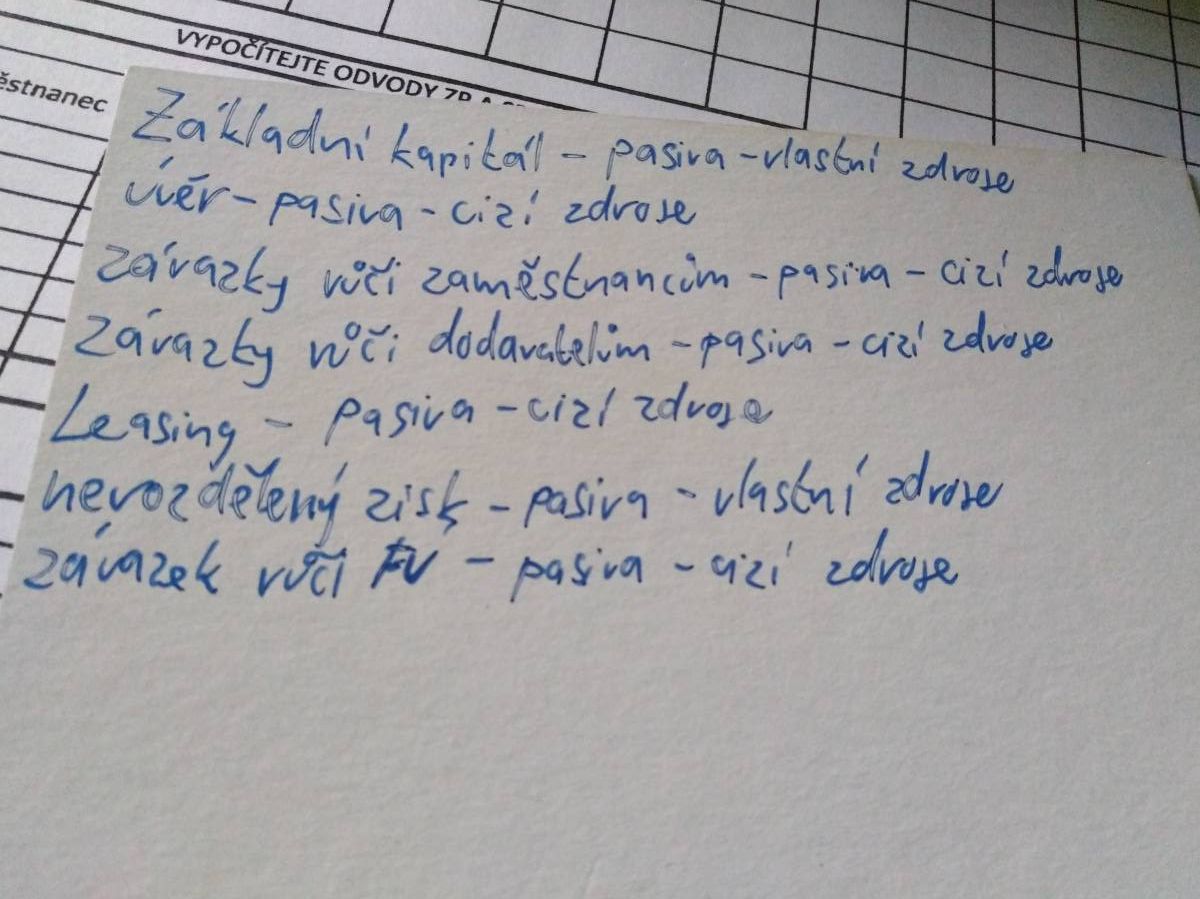 VYPOČÍTEJTE ODVODY ZP A
ěstnanec
Základní kapitál - pasiva - vlastní zdroje
úvěr - pasiva - cizí zdroje
závazky vůči zaměstnancům - pasiva - cizí zdroje
závazky vůči dodavatelům - pasiva - cizí zdroje
Leasing - pasiva - cizí zdroje
nevozdělený zisk - pasiva - vlastní zdroje
závazek vůči FÚ - pasiva - cizí zdroje